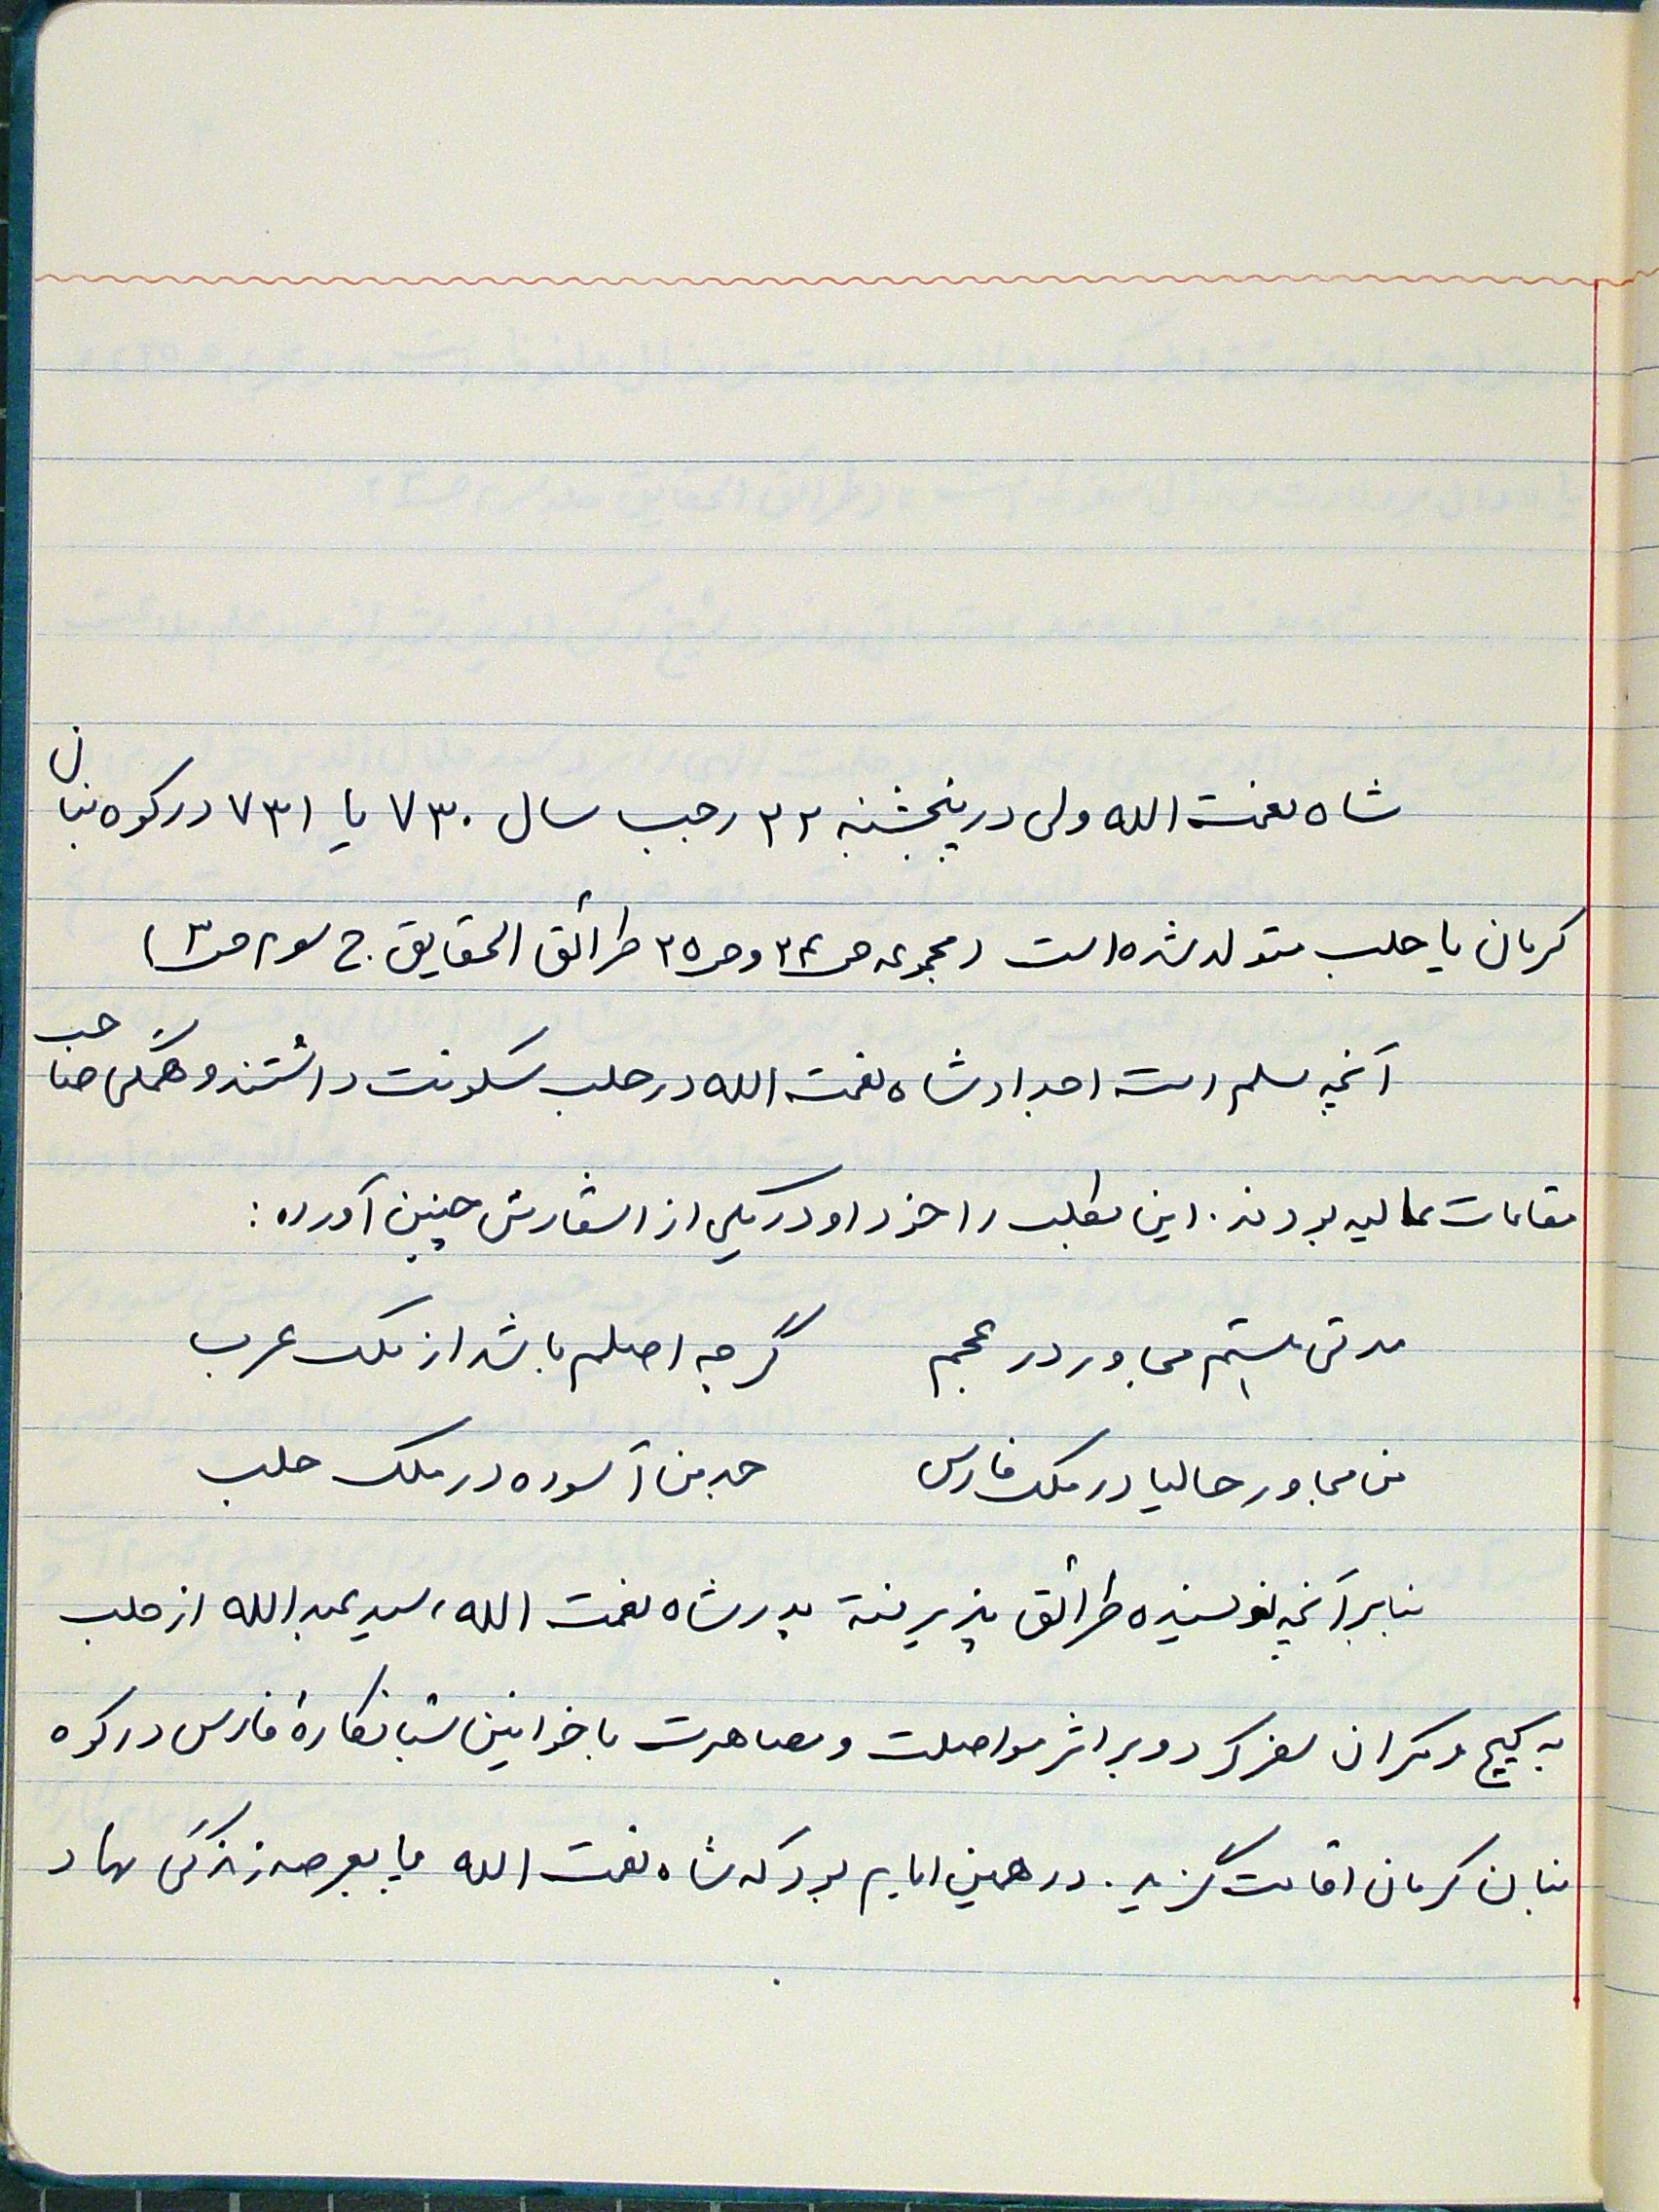 شاه نعمت الله ولی در پنجشنبه ۲۲ رجب سال ۷۳۰ یا ۷۳۱ در کوه بنان
کرمان یا حلب متولد شده است (مجموعه ص۲۴ و ص۲۵ طرائق الحقایق . ج سوم ص۳)
آنچه مسلم است اجداد شاه نعمت الله در حلب سکونت داشتند و همگی صاحب
مقامات عالیه بودند . این مطلب را خود او در یکی از اشعارش چنین آورده :
مدتی هستم مجاور در عجم گرچه اصلم باشد از ملک عرب
من مجاور حالیا در ملک فارس جد من آسوده در ملک حلب
بنا بر آنچه نویسنده طرائق پذیرفته پدر شاه نعمت الله ، سید عبدالله از حلب
به کیج و مکران سفر کرد و بر اثر مواصلت و مصاهرت با خوانین شبانکارهٔ فارس در کوه
بنان کرمان اقامت گزید . در همین ایام بود که شاه نعمت الله پا بعرصه زندگی نهاد